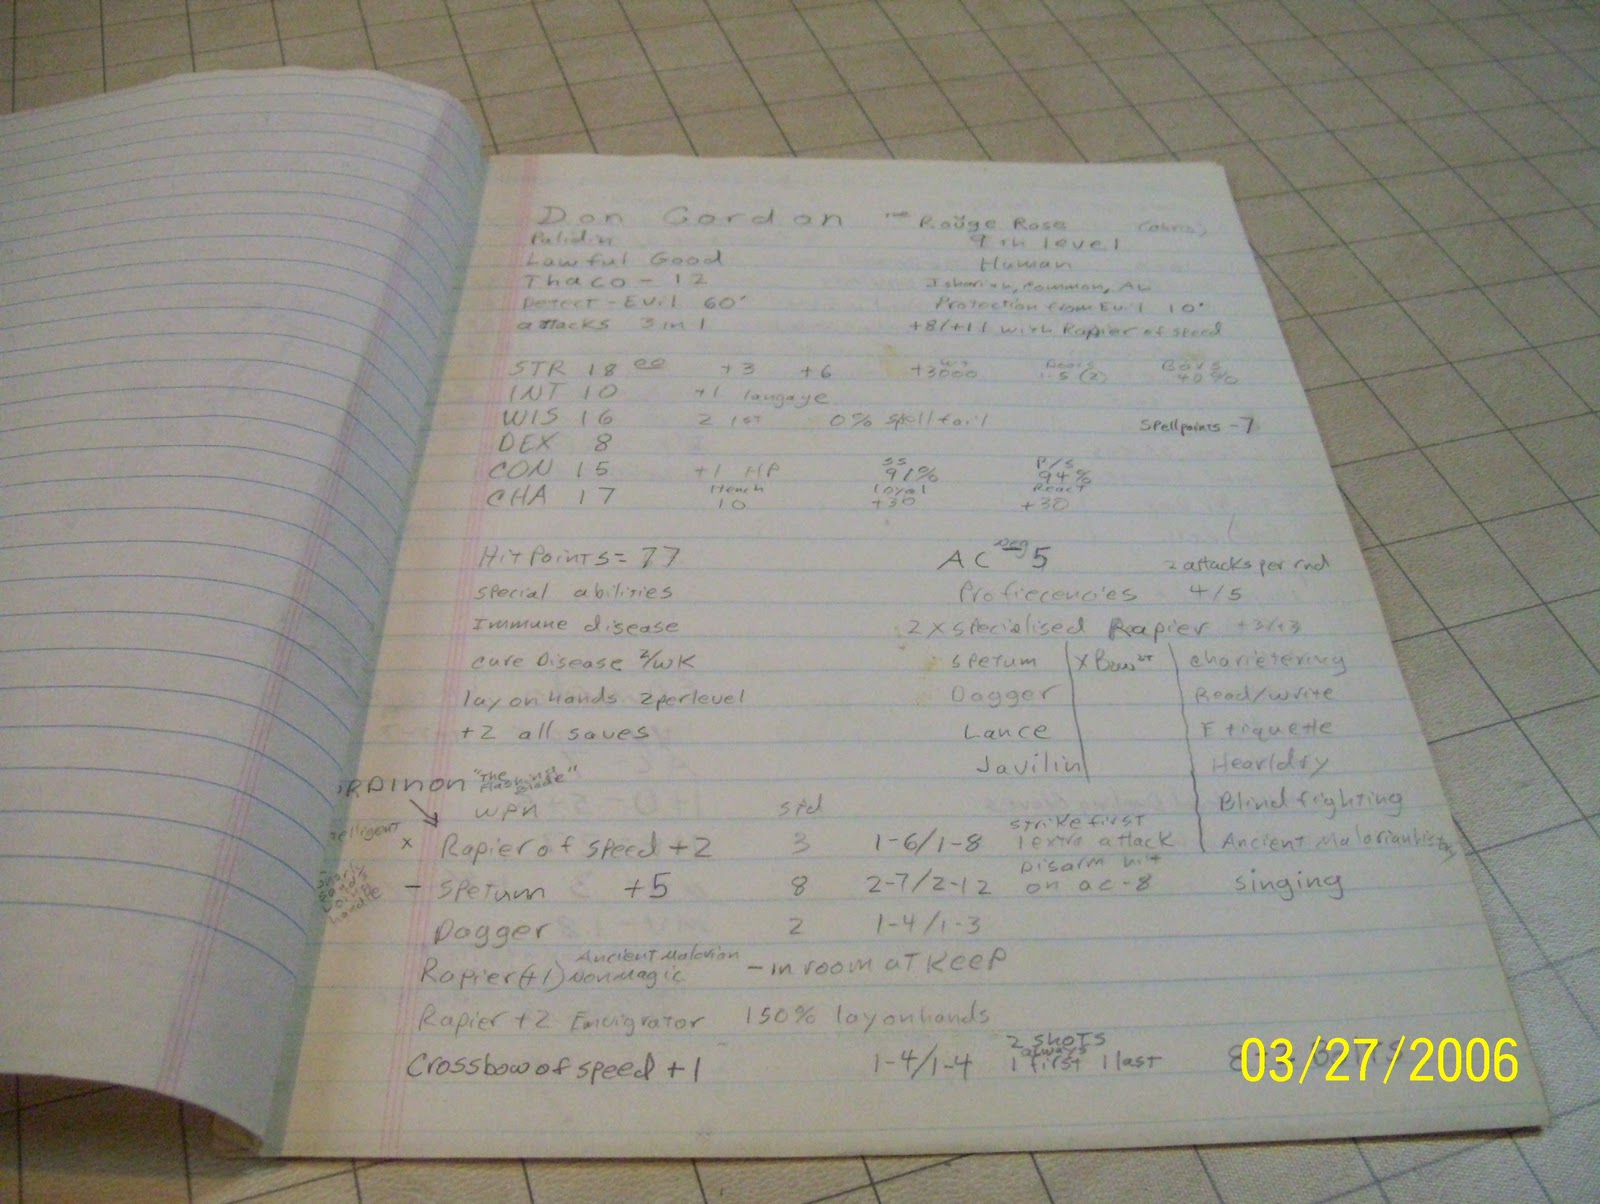 Don Gordon the Rouge Rose
Paladin 9th level
Lawful Good Human
Thaco - 12 Common,
Detect - Evil 60' Protection from Evil 10'
attacks 3 in 1 +8/+11 with Rapier of speed
STR 18 +3 +6 WT +3000 Doors 1-5 (2) Bars 40%
INT 10 +1 langaye
WIS 16 2 1st 0% spell fail spellpoints - 7
DEX 8
CON 15 +1 HP SS 91% P/S 94%
CHA 17 Hench 10 loyal +30 React +30
Hit Points = 77 AC neg 5 2 attacks per rnd
special abilities Profiecencies 4/5
Immune disease 2 x specialised Rapier +3/+3
cure Disease 2/wk spetum x Bow charietering
lay on hands 2 per level Dagger Read/write
+2 all saves Lance Etiquette
Javilin Hearldry
"The Flashing Blade"
wpn spd Blind fighting
x Rapier of speed +2 3 1-6/1-8 strike first 1 extra attack Ancient Malorian
- spetum +5 8 2-7/2-12 Disarm hit on ac-8 singing
handle
Dagger 2 1-4/1-3
Rapier (+1) Ancient Malorian Nonmagic - in room at Keep
Rapier +2 Envigrator 150% layonhands
Crossbow of speed +1 1-4/1-4 2 shots always 1 first 1 last
03/27/2006